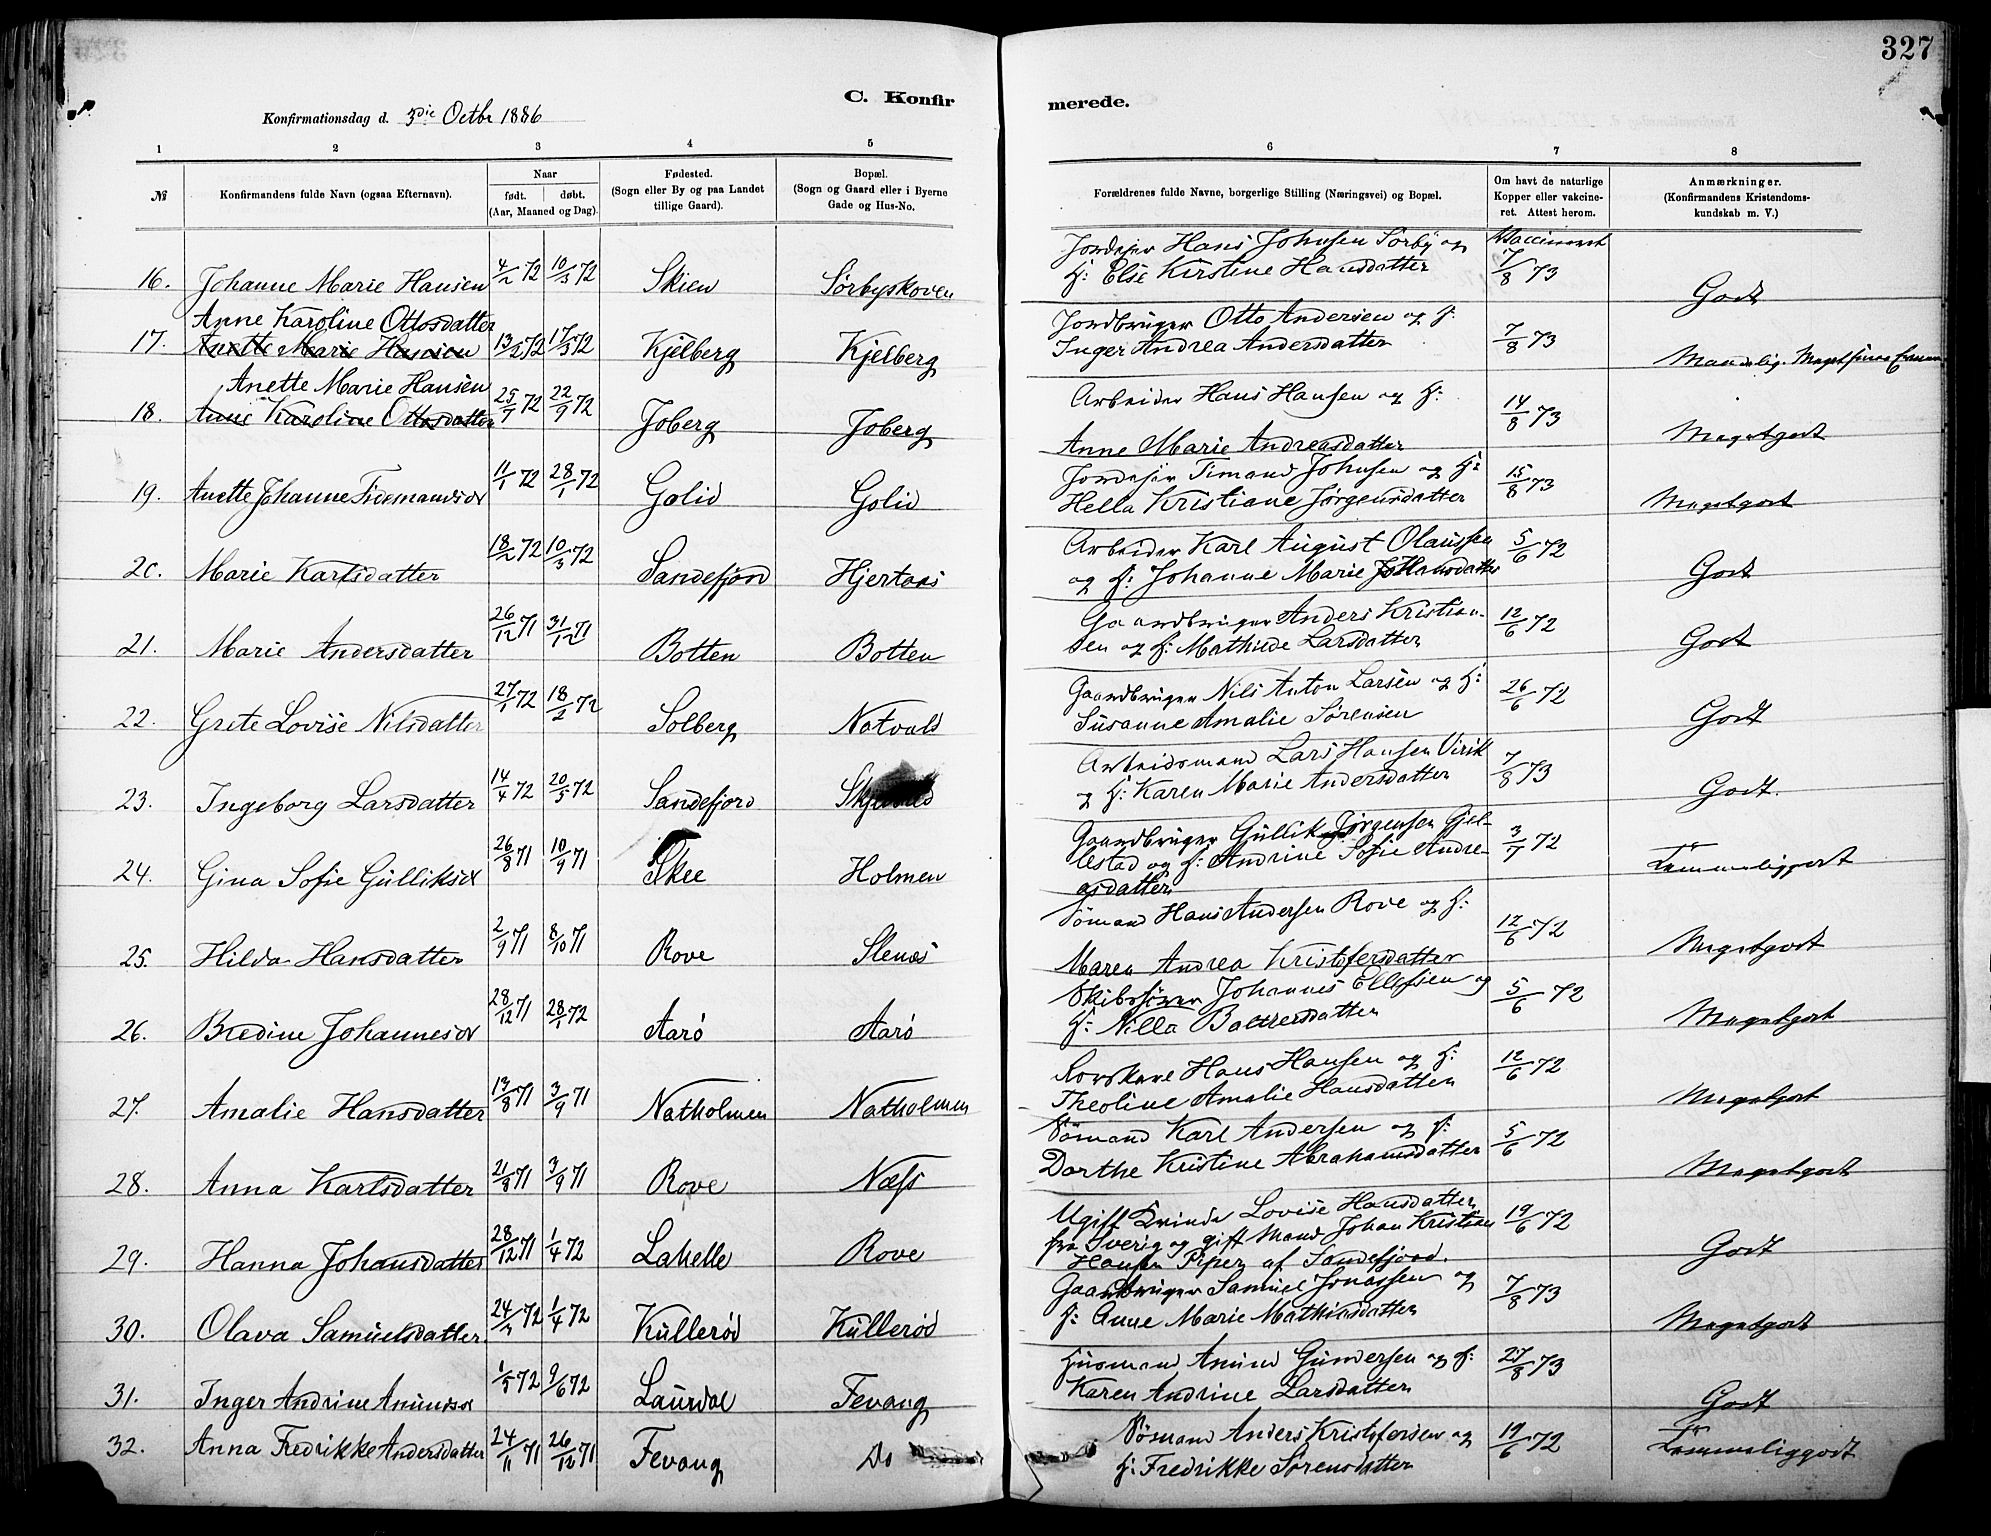 327
C. Konfir
merede.
Konfirmationsdag d. 3die Octbr 1886
1 2 3 4 5 6 7 8
№
Konfirmandens fulde Navn (ogsaa Efternavn).
Naar
født. døbt.
(Aar, Maaned og Dag).
Fødested.
(Sogn eller By og paa Landet
tillige Gaard).
Bopæl.
(Sogn og Gaard eller i Byerne
Gade og Hus-No.
Forældrenes fulde Navne, borgerlige Stilling (Næringsvei) og Bopæl.
Om havt de naturlige
Kopper eller vakcine-
ret. Attest herom.
Anmærkninger.
(Konfirmandens Kristendoms-
kundskab m. V.)
16. Johanne Marie Hansen 4/2 72 10/3 72 Skien Sørbyskoven
Jordejer Hans Johnsen Sørby og
H: Else Kirstine Hansdatter
Vaccineret
7/8 73 Godt
Anne Karoline Ottosdatter
17. Anette Marie Hansen 13/2 72 17/3 72 Kjelberg Kjelberg
Jordbruger Otto Andersen og H:
Inger Andrea Andersdatter
7/8 73 Maadelig. Meget
Anette Marie Hansen
18. Anne Karoline Ottosdatter 25/7 72 22/9 72 Joberg Joberg
Arbeider Hans Hansen og H:
Anne Marie Andreasdatter
14/8 73 Megetgodt
19. Anette Johanne Timandsd 11/1 72 28/1 72 Golid Golid
Jordejer Timand Johnsen og H:
Hella Kristiane Jørgensdatter
15/8 73 Megetgodt
20. Marie Karlsdatter 18/2 72 10/3 72 Sandefjord Hjertaas
Arbeider Karl August Olaussen
og H: Johanne Marie Hansdatter
5/6 72 Godt
21. Marie Andersdatter 26/12 71 31/12 71 Botten Botten
Gaardbruger Anders Kristian-
sen og H: Mathilde Larsdatter
12/6 72 Godt
22. Grete Lovise Nilsdatter 27/1 72 18/2 72 Solberg Natvald
Gaardbruger Nils Anton Larsen og H:
Susanne Amalie Sørensen
26/6 72 Godt
23. Ingeborg Larsdatter 14/4 72 20/5 72 Sandefjord
Arbeidsmand Lars Hansen Virik
og H: Karen Marie Andersdatter
7/8 73 Godt.
24. Gina Sofie Gulliksd 26/8 71 10/9 71 Skee Holmen
Gaardbruger Gullik Jørgensen Gjel-
lestad og H: Andrine Sofie Andre-
asdatter
3/7 72 Temmeliggodt
25. Hilda Hansdatter 2/9 71 8/10 71 Rove Stenås
Sømand Hans Andersen Rove og H:
Maren Andrea Kristofersdatter
12/6 72 Megetgodt
26. Bredine Johannesd 28/12 71 28/1 72 Aarø Aarø
Skibsfører Johannes Ellefsen og
H: Nilla Boltersdatter
5/6 72 Megetgodt
27. Amalie Hansdatter 13/8 71 3/9 71 Natholmen Natholmen
Rorskarl Hans Hansen og H:
Theoline Amalie Hansdatter
12/6 72 Megetgodt
28. Anna Karlsdatter 21/8 71 3/9 71 Rove Næss
Sømand Karl Andersen og H:
Dorthe Kristine Abrahamsdatter
5/6 72 Megetgodt
29. Hanna Johansdatter 28/12 71 1/4 72 Lahelle Rove
Ugift Kvinde Lovise Hansdatter
fra Sverig og gift Mand Johan Kristian
Hansen Piper af Sandefjord.
19/6 72 Godt
30. Olava Samuelsdatter 24/3 72 1/4 72 Küllerød Küllerød
Gaardbruger Samuel Jonassen og
H: Anne Marie Mathiasdatter
7/8 73 Megetgodt
31. Inger Andrine Amundsd 1/5 72 9/6 72 Laurdal Fevang
Husmand Amund Gundersen og H:
Karen Andrine Larsdatter
27/8 73 Godt
32. Anna Fredrikke Andersdatter 24/11 71 26/12 71 Fevang Do
Sømand Anders Kristofersen og
H: Fredrikke Sørensdatter
19/6 72 Temmeliggodt